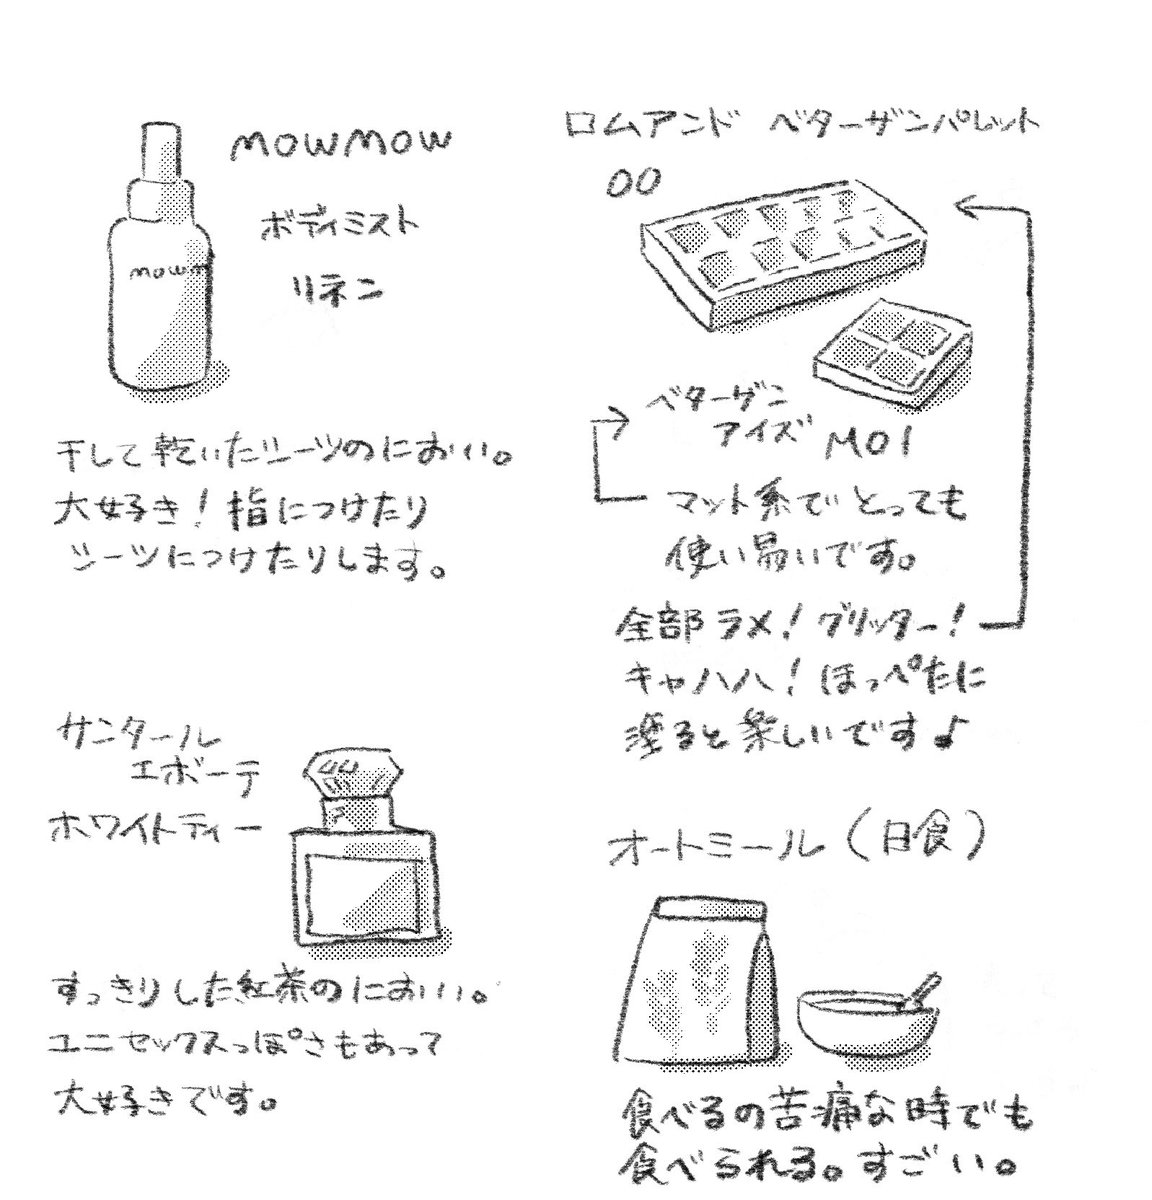 mowmow
ボディミスト
リネン
mowm
干して乾いたシーツのにおい。
大好き！指につけたり
シーツにつけたりします。
ロムアンド ベターザンパレット
00
ベターザン
アイズ M01
マット系でとっても
使い易いです。
全部ラメ！グリッター！
キャハハ！ほっぺたに
塗ると楽しいです♪
サンタール
エボーテ
ホワイトティー
すっきりした紅茶のにおい。
ユニセックスっぽさもあって
大好きです。
オートミール（日食）
食べるの苦痛な時でも
食べられる。すごい。